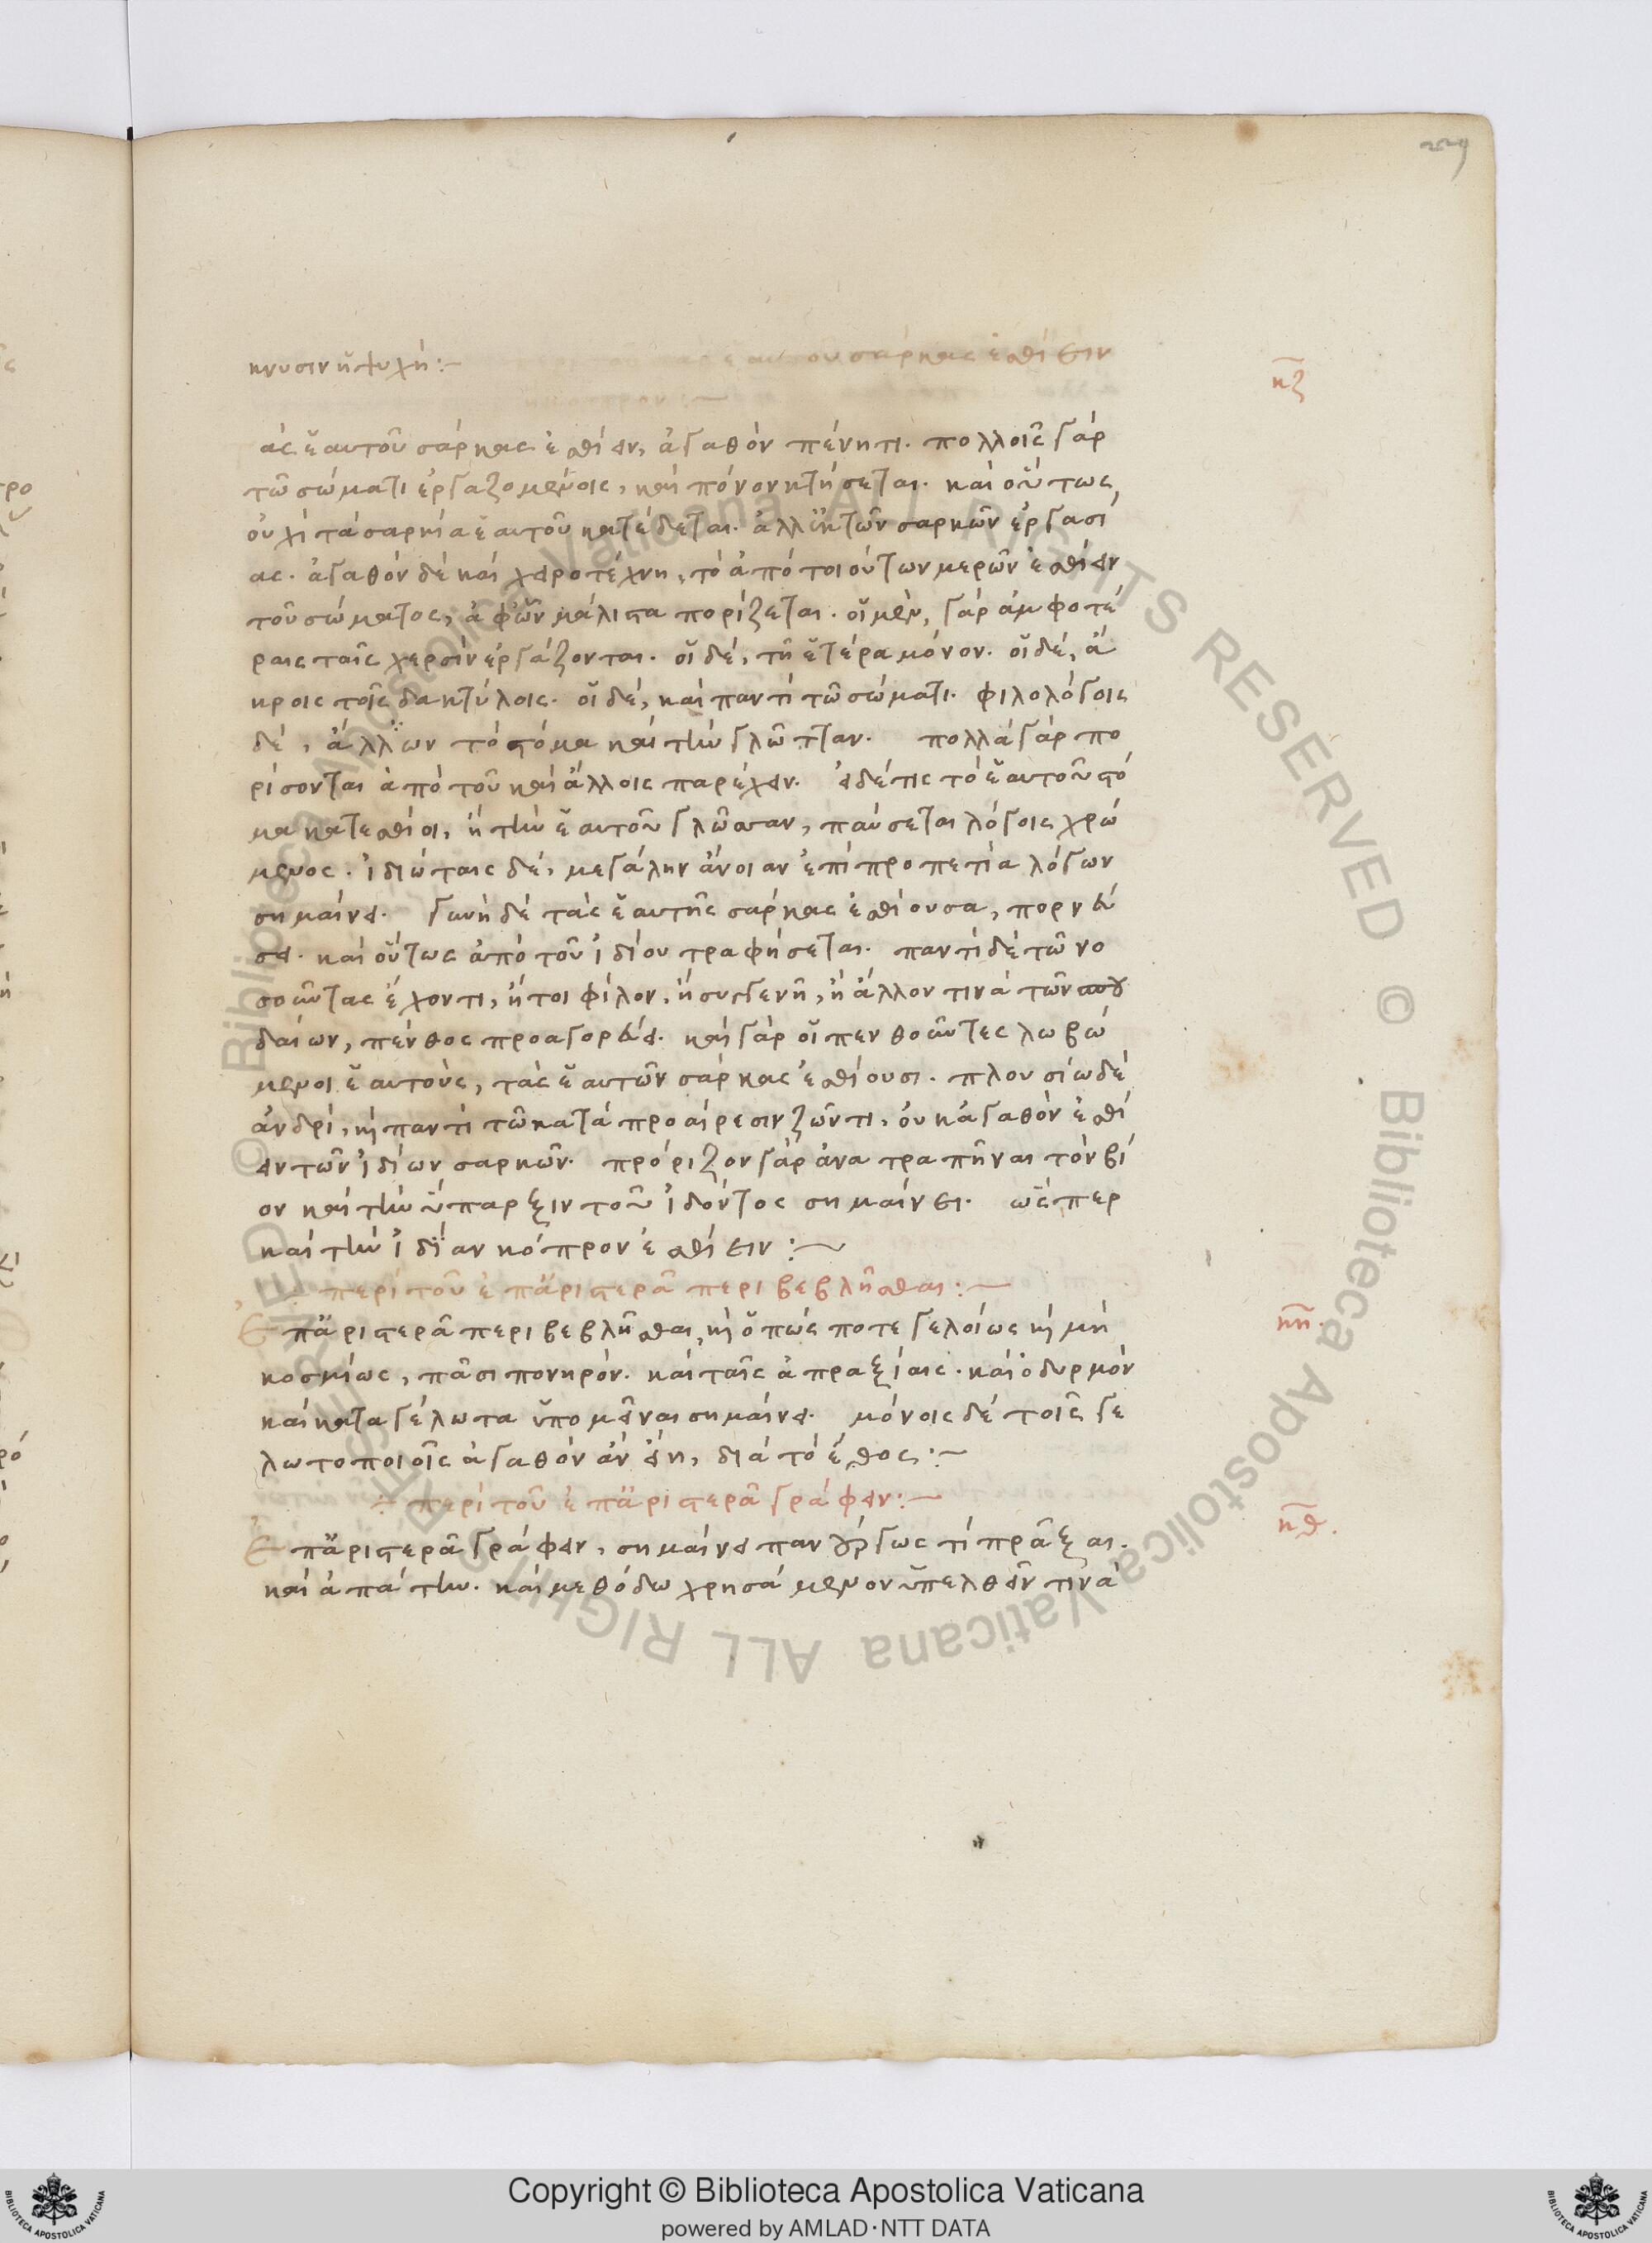 229
κνυσιν ἡ ψυχή:– ἑαυτοῦ σάρκας ἐσθίειν
κζ
ὰς ἑαυτοῦ σάρκας ἐσθίειν, ἀγαθὸν πένητι. πολλοῖς γάρ
τῶ σώματι ἐργαζομένοις, καὶ πόνον κτήσεται. καὶ οὕτως
οὐχὶ τὰ σαρκία ἑαυτοῦ κατέδεται. ἀλλ' ἐκ τῶν σαρκῶν ἐργασί
ας. ἀγαθὸν δὲ καὶ χειροτέχνη, τὸ ἀπὸ τοιούτων μερῶν ἐσθίειν
τοῦ σώματος, ἀφ' ὧν μάλιστα πορίζεται. οἱ μὲν, γὰρ ἀμφοτέ
ραις ταῖς χερσὶν ἐργάζονται. οἱ δέ, τῆ ἑτέρα μόνον. οἱ δέ, ἄ
κροις τοῖς δακτύλοις. οἱ δέ, καὶ παντὶ τῶ σώματι. φιλολόγοις
δέ, ἄλλων τὸ στόμα καὶ τὴν γλῶτταν. πολλὰ γὰρ πο
ρίσονται ἀπὸ τοῦ καὶ ἄλλοις παρέχειν. εἰ δέ τις τὸ ἑαυτοῦ στό
μα κατεσθίοι, ἢ τὴν ἑαυτοῦ γλῶσσαν, παύσεται λόγοις χρώ
μενος. ἰδιώταις δέ, μεγάλην ἄνοιαν ἐπὶ προπετία λόγων
σημαίνει. γυνὴ δὲ τὰς ἑαυτῆς σάρκας ἐσθίουσα, πορνεύ
σει. καὶ οὕτως ἀπὸ τοῦ ἰδίου τραφήσεται. παντὶ δὲ τῶ νο
σοῦντας ἔχοντι, ἤτοι φίλον, ἢ συγγενῆ, ἢ ἄλλον τινὰ τῶν σπου
δαίων, πένθος προαγορεύει. καὶ γὰρ οἱ πενθοῦντες λωβώ
μενοι ἑαυτοὺς, τὰς ἑαυτῶν σάρκας ἐσθίουσι. πλουσίω δὲ
ἀνδρί, ἢ παντὶ τῶ κατὰ προαίρεσιν ζῶντι, οὐκ ἀγαθὸν ἐσθί
ειν τῶν ἰδίων σαρκῶν. πρόριζον γὰρ ἀνατραπῆναι τὸν βί
ον καὶ τὴν ὕπαρξιν τοῦ ἰδόντος σημαίνει. ὥσπερ
καὶ τὴν ἰδίαν κόπρον ἐσθίειν:~
περὶ τοῦ ἐπ' ἀριστερᾶ περιβεβλῆσθαι:–
κη.
Ἐπ' ἀριστερᾶ περιβεβλῆσθαι, ἢ ὁπώς ποτε γελοίως ἢ μὴ
κοσμίως, πᾶσι πονηρόν. καὶ ταῖς ἀπραξίαις. καὶ ὀδυρμὸν
καὶ κατα γέλωτα ὑπομεῖναι σημαίνει. μόνοις δὲ τοῖς γε
λωτοποιοῖς ἀγαθὸν ἂν εἴη, διὰ τὸ ἔθος:~
÷ περὶ τοῦ ἐπ' ἀριστερᾶ γράφειν:–
κθ.
Ἐπ' ἀριστερᾶ γράφειν, σημαίνει πανούργως τὶ πρᾶξαι.
καὶ ἀπάτην. καὶ μεθόδω χρησάμενον ὑπελθεῖν τινὰ
© Biblioteca Apostolica Vaticana ALL RIGHTS RESERVED © Biblioteca Apostolica Vaticana ALL RIGHTS RESERVED
Copyright © Biblioteca Apostolica Vaticana
powered by AMLAD·NTT DATA
BIBLIOTECA APOSTOLICA VATICANA
BIBLIOTECA APOSTOLICA VATICANA